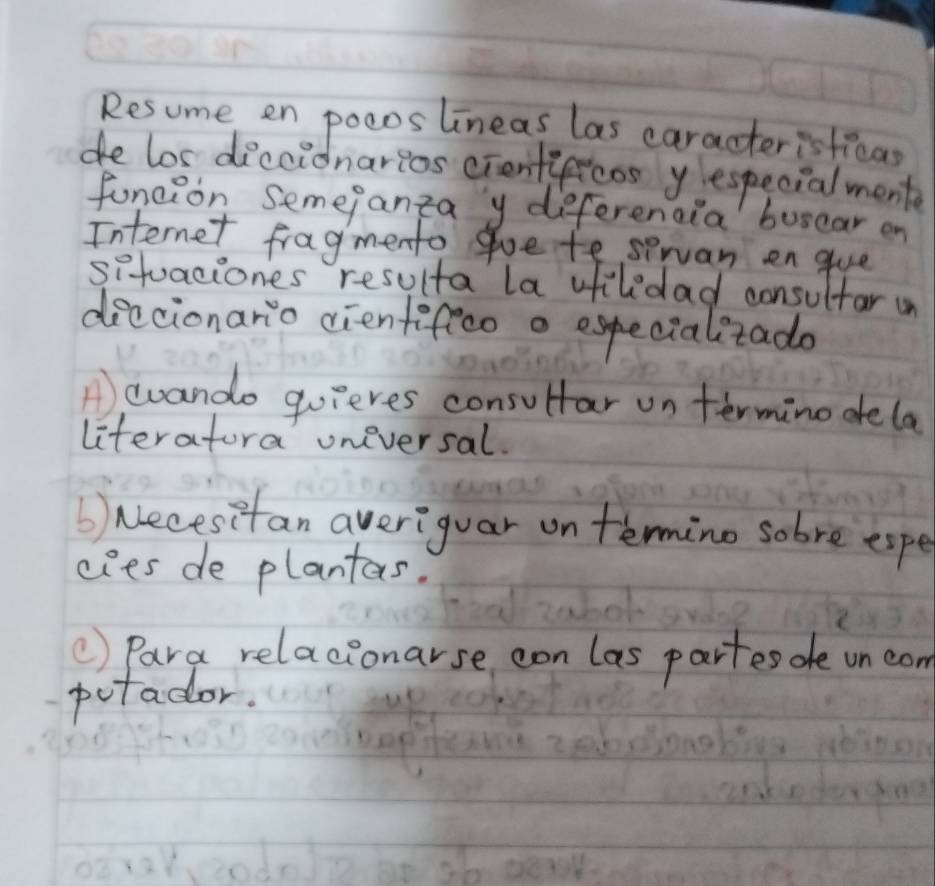 Resume en pocos líneas las características
de los diccidnarios científicos y especialmente
función semejanza y diferencia buscar en
Internet fragmento que te sirvan en que
situaciones resulta la utilidad consultar un
diccionario científico o especializado
A) cuando quieres consultar un término de la
literatura universal.
b) Necesitan averiguar un término sobre espe
cies de plantas.
c) Para relacionarse con las partes de un com
putador.